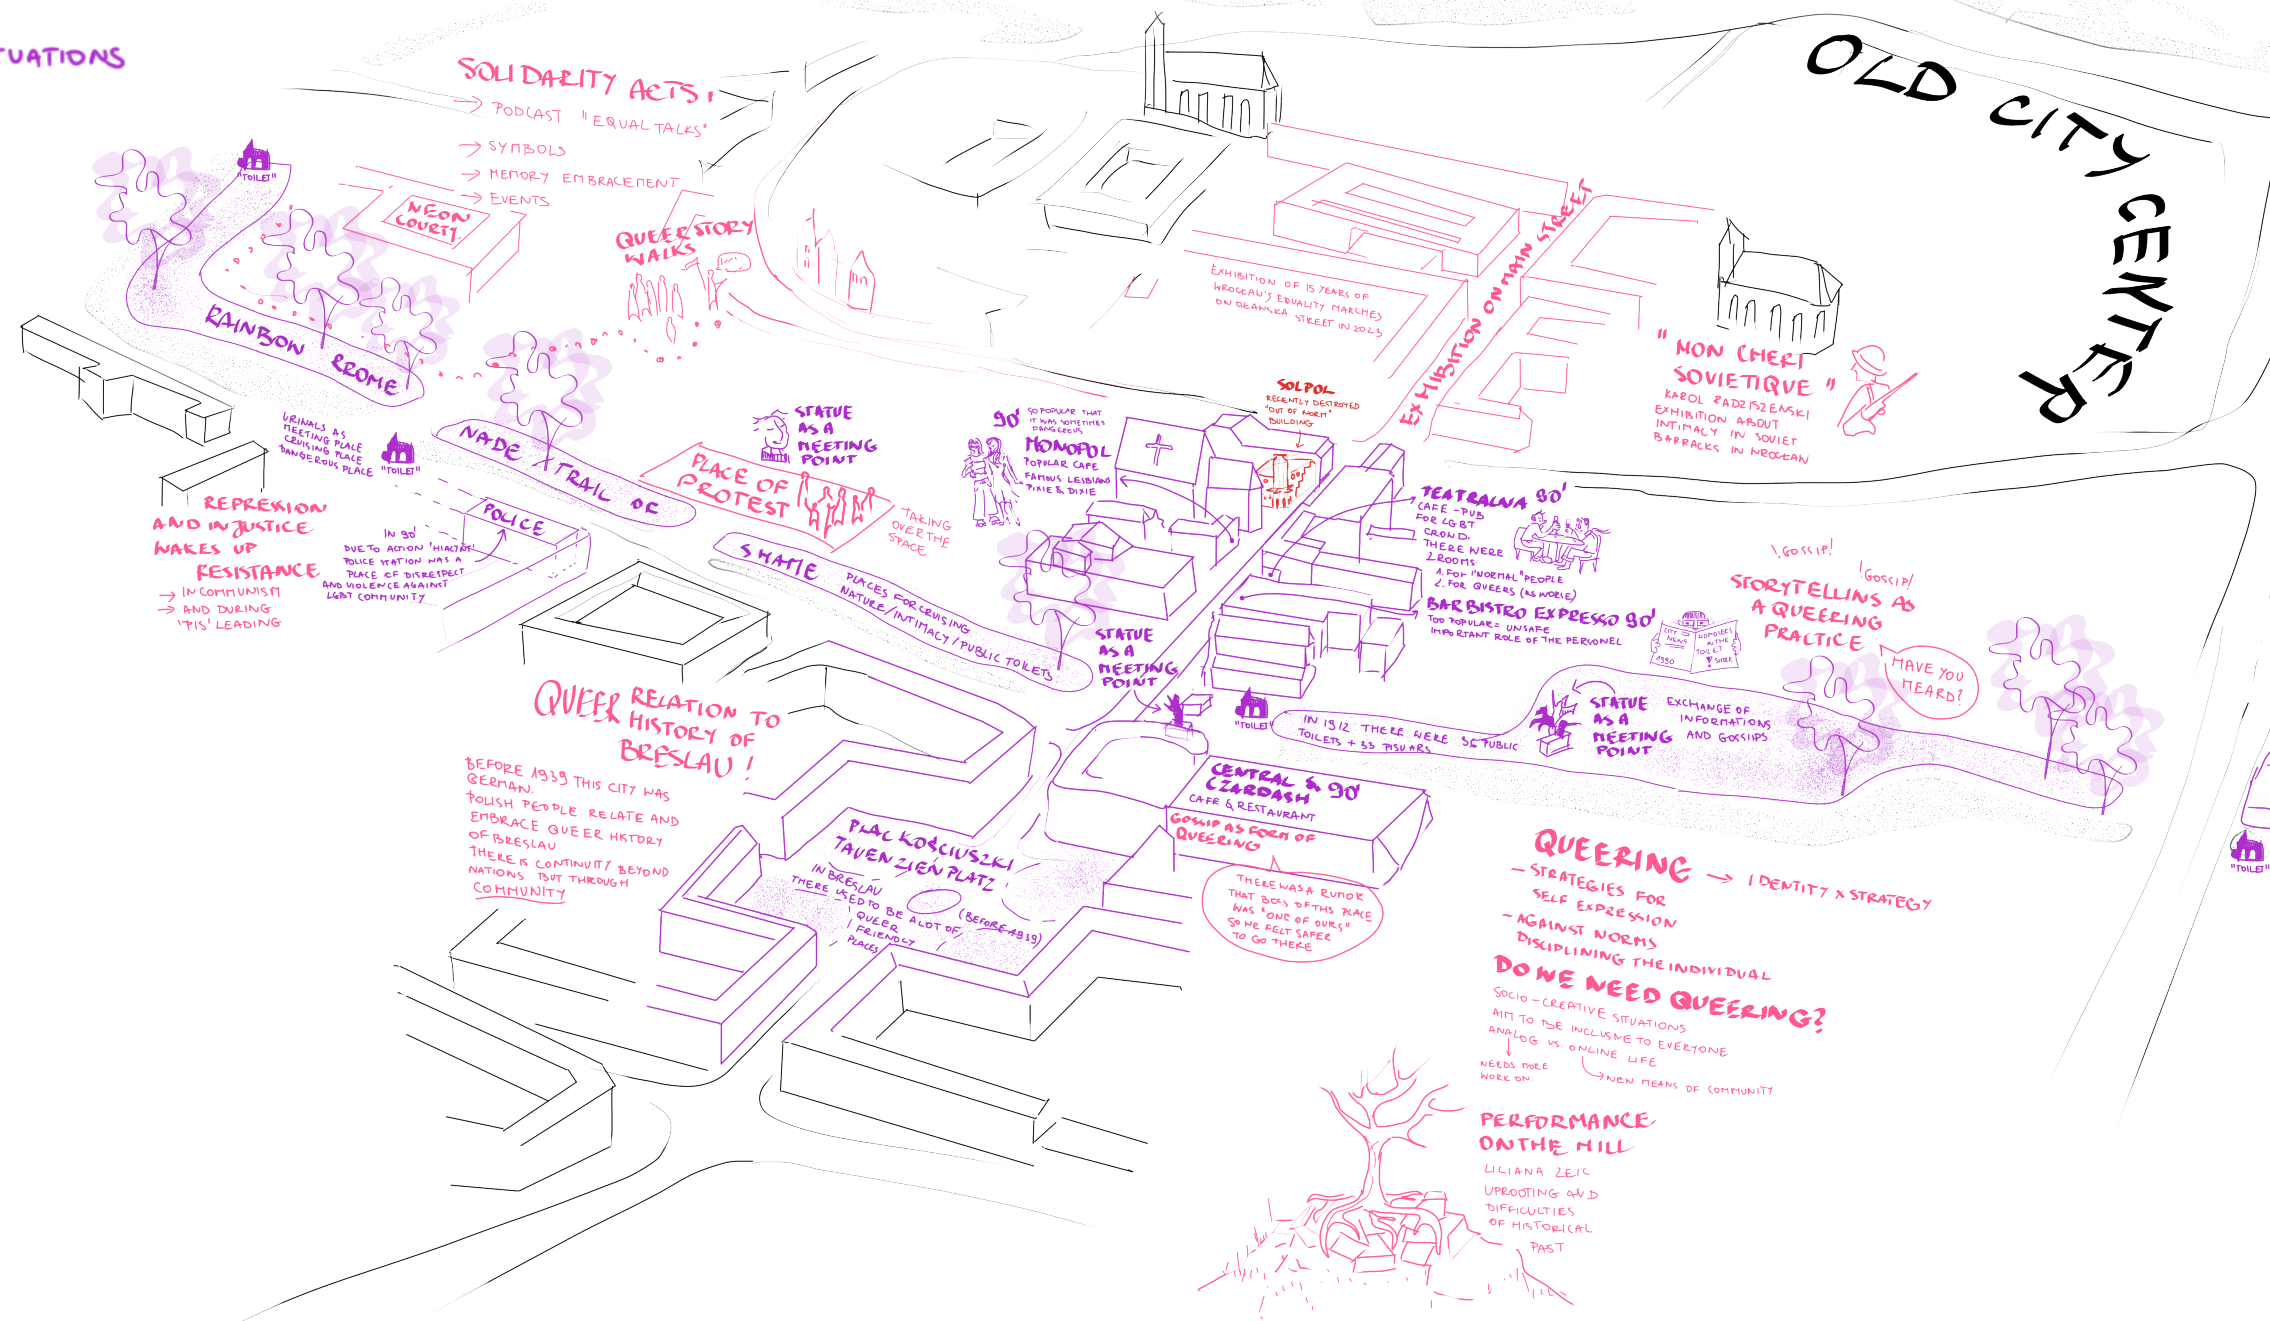 TUATIONS
SOLIDARITY ACTS:
→ PODCAST "EQUAL TALKS"
→ SYMBOLS
→ MEMORY EMBRACEMENT
→ EVENTS
OLD CITY CENTER
"TOILET"
NEON
COURTY
QUEERSTORY
WALKS
RAINBOW
EXHIBITION OF 15 YEARS OF
WROCŁAW'S EQUALITY MARCHES
ON OŁAWSKA STREET IN 2023
EXHIBITION ON MAIN STREET
"MON CHERI
SOVIETIQUE"
KAROL RADZISZENSKI
EXHIBITION ABOUT
INTIMACY IN SOVIET
BARRACKS IN WROCŁAW
SOLPOL
RECENTLY DESTROYED
"OUT OF NORM"
BUILDING
URINALS AS
MEETING PLACE
CRUISING PLACE
DANGEROUS PLACE
"TOILET"
NADE X TRAIL OF
SHAME
PLACES FOR CRUISING
NATURE/INTIMACY/PUBLIC TOILETS
STATUE
AS A
MEETING
POINT
PLACE OF
PROTEST
TAKING
OVER THE
SPACE
90'
SO POPULAR THAT
IT WAS SOMETIMES
DANGEROUS
MONOPOL
POPULAR CAFE
FAMOUS LESBIANS
PIXIE & DIXIE
REPRESSION
AND INJUSTICE
WAKES UP
RESISTANCE
→ IN COMMUNISM
→ AND DURING
'PIS' LEADING
POLICE
IN 90'
DUE TO ACTION 'HIACYNT'
POLICE STATION WAS A
PLACE OF DISRESPECT
AND VIOLENCE AGAINST
LGBT COMMUNITY
TEATRALNA 90'
CAFE-PUB
FOR LGBT
CROWD.
THERE WERE
2 ROOMS:
1. FOR "NORMAL" PEOPLE
2. FOR QUEERS (AS WORSE)
BARBISTRO EXPRESSO 90'
TOO POPULAR = UNSAFE
IMPORTANT ROLE OF THE PERSONEL
CITY
NEWS
1990
HOMOSEXS
IN THE
TOILET
! SHOCK
! GOSSIP!
! GOSSIP!
STORYTELLING AS
A QUEERING
PRACTICE
HAVE YOU
HEARD?
STATUE
AS A
MEETING
POINT
"TOILET"
IN 1912 THERE WERE 56 PUBLIC
TOILETS + 33 PISUARS
STATUE
AS A
MEETING
POINT
EXCHANGE OF
INFORMATIONS
AND GOSSIPS
QUEER RELATION TO
HISTORY OF
BRESLAU!
BEFORE 1939 THIS CITY WAS
GERMAN.
POLISH PEOPLE RELATE AND
EMBRACE QUEER HISTORY
OF BRESLAU
THERE IS CONTINUITY BEYOND
NATIONS BUT THROUGH
COMMUNITY
PLAC KOŚCIUSZKI
TAUENZIEŃPLATZ
IN BRESLAU
THERE USED TO BE A LOT OF
QUEER
FRIENDLY
PLACES
(BEFORE 1939)
CENTRAL & 90'
CZARDASH
CAFE & RESTAURANT
GOSSIP AS FORM OF
QUEERING
THERE WAS A RUMOR
THAT BOSS OF THIS PLACE
WAS "ONE OF OURS"
SO WE FELT SAFER
TO GO THERE
"TOILET"
QUEERING → IDENTITY X STRATEGY
- STRATEGIES FOR
SELF EXPRESSION
- AGAINST NORMS
DISCIPLINING THE INDIVIDUAL
DO WE NEED QUEERING?
SOCIO-CREATIVE SITUATIONS
AIM TO BE INCLUSIVE TO EVERYONE
ANALOG VS. ONLINE LIFE
NEEDS MORE
WORK ON.
NEW MEANS OF COMMUNITY
PERFORMANCE
ON THE HILL
LILIANA ZEIC
UPROOTING AND
DIFFICULTIES
OF HISTORICAL
PAST